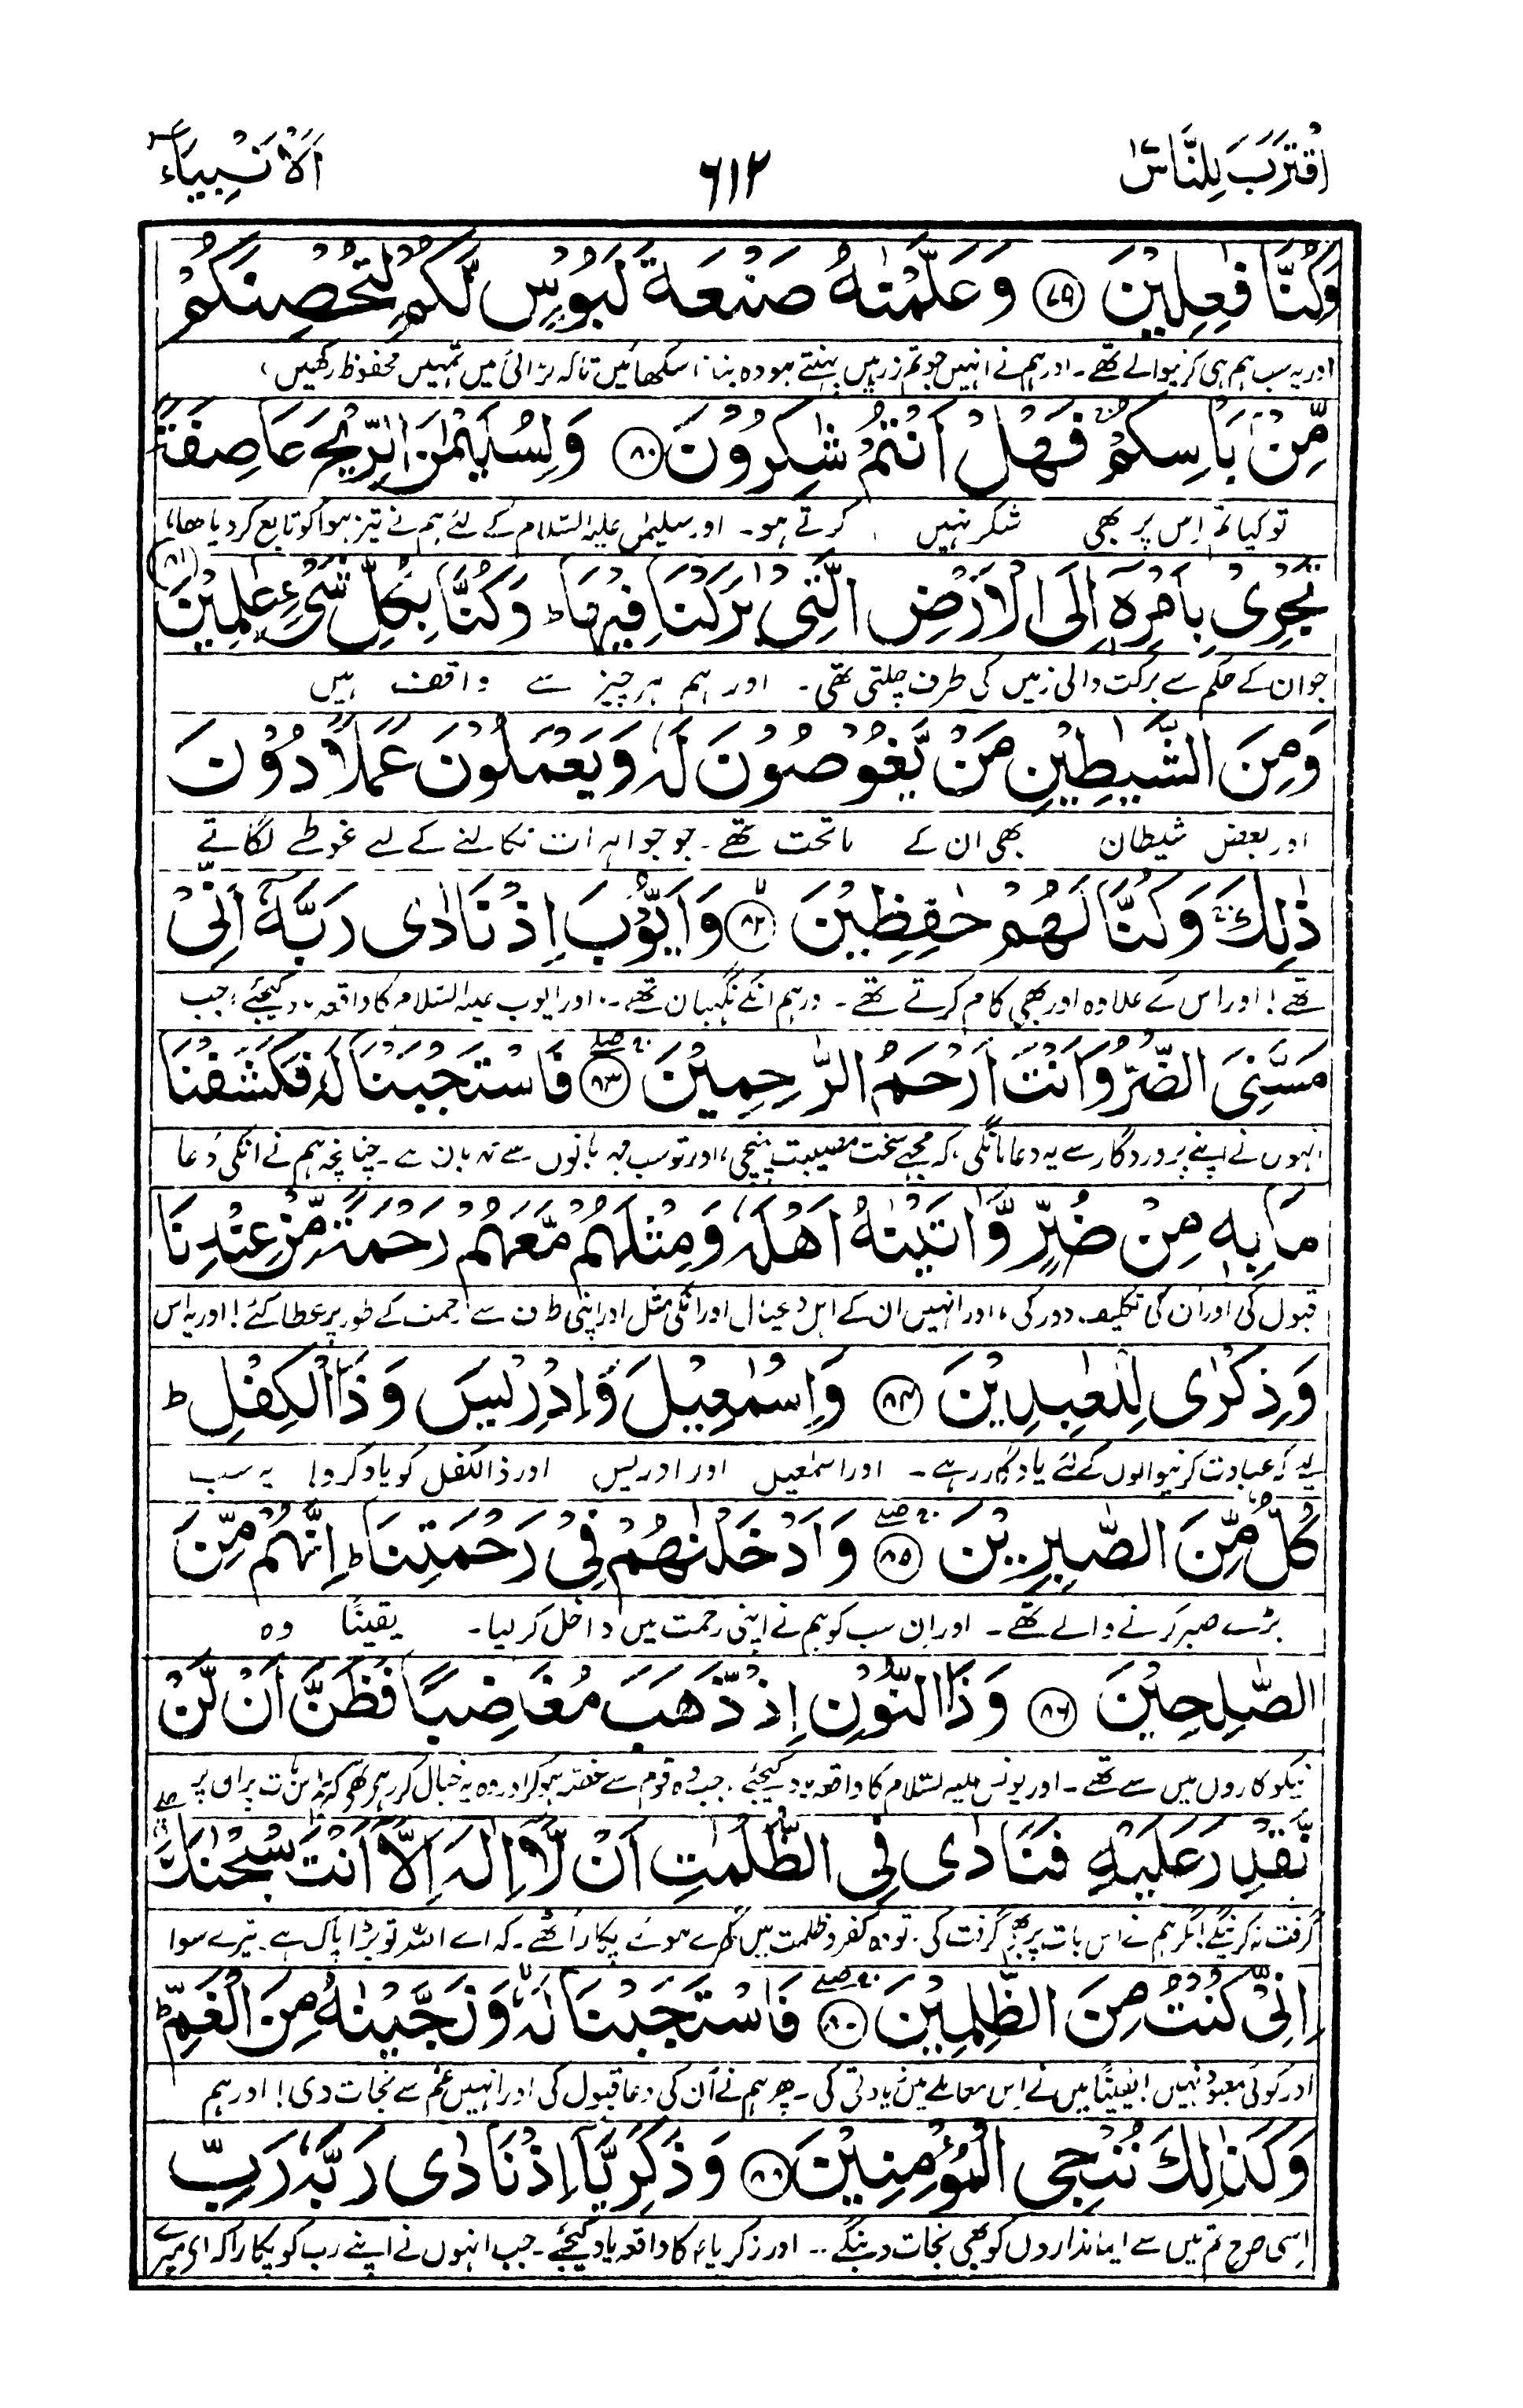 اقْتَرَبَ لِلنَّاسِ ۱۷
۶۱۲
اَلْاَنْۢبِيَآء
وَكُنَّا فٰعِلِيْنَ ﴿۷۹﴾ وَعَلَّمْنٰهُ صَنْعَةَ لَبُوْسٍ لَّكُمْ لِتُحْصِنَكُمْ
اور یہ سب ہم ہی کرنیوالے تھے۔ اور ہم نے انہیں جو تم زرہیں پہنتے ہو وہ بنانا سکھائیں تاکہ لڑائی میں تمہیں محفوظ رکھیں،
مِّنْۢ بَاْسِكُمْ ۚ فَهَلْ اَنْتُمْ شٰكِرُوْنَ ﴿۸۰﴾ وَلِسُلَيْمٰنَ الرِّيْحَ عَاصِفَةً
تو کیا تم اِس پر بھی شکر نہیں کرتے ہو۔ اور سلیمٰن علیہ السّلام کے لئے ہم نے تیز ہوا کو تابع کر دیا تھا،
تَجْرِىْ بِاَمْرِهٖٓ اِلَى الْاَرْضِ الَّتِىْ بٰرَكْنَا فِيْهَا ؕ وَكُنَّا بِكُلِّ شَىْءٍ عٰلِمِيْنَ ﴿۸۱﴾
جو ان کے حکم سے برکت والی زمین کی طرف چلتی تھی۔ اور ہم ہر چیز سے واقف ہیں
وَمِنَ الشَّيٰطِيْنِ مَنْ يَّغُوْصُوْنَ لَهٗ وَيَعْمَلُوْنَ عَمَلًا دُوْنَ
اور بعض شیطان بھی ان کے ماتحت تھے۔ جو جواہرات نکالنے کے لیے غوطے لگاتے
ذٰلِكَ ۚ وَكُنَّا لَهُمْ حٰفِظِيْنَ ﴿۸۲﴾ ۙ وَاَيُّوْبَ اِذْ نَادٰى رَبَّهٗٓ اَنِّىْ
تھے! اور اس کے علاوہ اور بھی کام کرتے تھے۔ اور ہم انکے نگہبان تھے۔ اور ایوب علیہ السّلام کا واقعہ یاد کیجئے؛ جب
مَسَّنِىَ الضُّرُّ وَاَنْتَ اَرْحَمُ الرّٰحِمِيْنَ ﴿۸۳﴾ فَاسْتَجَبْنَا لَهٗ فَكَشَفْنَا
انہوں نے اپنے پروردگار سے یہ دعا مانگی، کہ مجھے سخت مصیبت پہنچی، اور تو سب مہربانوں سے مہربان ہے۔ چنانچہ ہم نے انکی دُعا
مَا بِهٖ مِنْ ضُرٍّ وَّاٰتَيْنٰهُ اَهْلَهٗ وَمِثْلَهُمْ مَّعَهُمْ رَحْمَةً مِّنْ عِنْدِنَا
قبول کی اور اُن کی تکلیف دور کی، اور انہیں ان کے اہل و عیال اور انکی مثل اور اپنی طرف سے رحمت کے طور پر عطا کئے! اور یہ اس
وَذِكْرٰى لِلْعٰبِدِيْنَ ﴿۸۴﴾ وَاِسْمٰعِيْلَ وَاِدْرِيْسَ وَذَا الْكِفْلِ ؕ
لیے کہ عبادت کرنیوالوں کے لئے یادگار رہے۔ اور اسمٰعیل اور ادریس اور ذالکفل کو یاد کرو! یہ سب
كُلٌّ مِّنَ الصّٰبِرِيْنَ ﴿۸۵﴾ وَاَدْخَلْنٰهُمْ فِىْ رَحْمَتِنَا ؕ اِنَّهُمْ مِّنَ
بڑے صبر کرنے والے تھے۔ اور ان سب کو ہم نے اپنی رحمت میں داخل کر لیا۔ یقینًا وہ
الصّٰلِحِيْنَ ﴿۸۶﴾ وَذَا النُّوْنِ اِذْ ذَّهَبَ مُغَاضِبًا فَظَنَّ اَنْ لَّنْ
نیکوکاروں میں سے تھے۔ اور یونس علیہ السّلام کا واقعہ یاد کیجئے، جب وہ قوم سے غصّہ ہو کر اور وہ یہ خیال کر رہے تھے کہ ہم اس بات پر ان پر
نَّقْدِرَ عَلَيْهِ فَنَادٰى فِى الظُّلُمٰتِ اَنْ لَّآ اِلٰهَ اِلَّآ اَنْتَ سُبْحٰنَكَ
گرفت نہ کرینگے! مگر ہم نے اس بات پر بھی گرفت کی۔ تو وہ کفر و ظلمت میں گھرے ہوئے پکار اُٹھے۔ کہ اے اللہ تو بڑا پاک ہے۔ تیرے سوا
اِنِّىْ كُنْتُ مِنَ الظّٰلِمِيْنَ ﴿۸۷﴾ فَاسْتَجَبْنَا لَهٗ وَنَجَّيْنٰهُ مِنَ الْغَمِّ ؕ
اور کوئی معبود نہیں! یقینًا میں نے اِس معاملے میں زیادتی کی۔ پھر ہم نے اُن کی دعا قبول کی اور انہیں غم سے نجات دی! اور ہم
وَكَذٰلِكَ نُنْجِى الْمُؤْمِنِيْنَ ﴿۸۸﴾ وَزَكَرِيَّآ اِذْ نَادٰى رَبَّهٗ رَبِّ
اِسی طرح تم میں سے ایمانداروں کو بھی نجات دینگے۔ اور زکریاء کا واقعہ یاد کیجئے۔ جب انہوں نے اپنے رب کو پکارا کہ اے میرے